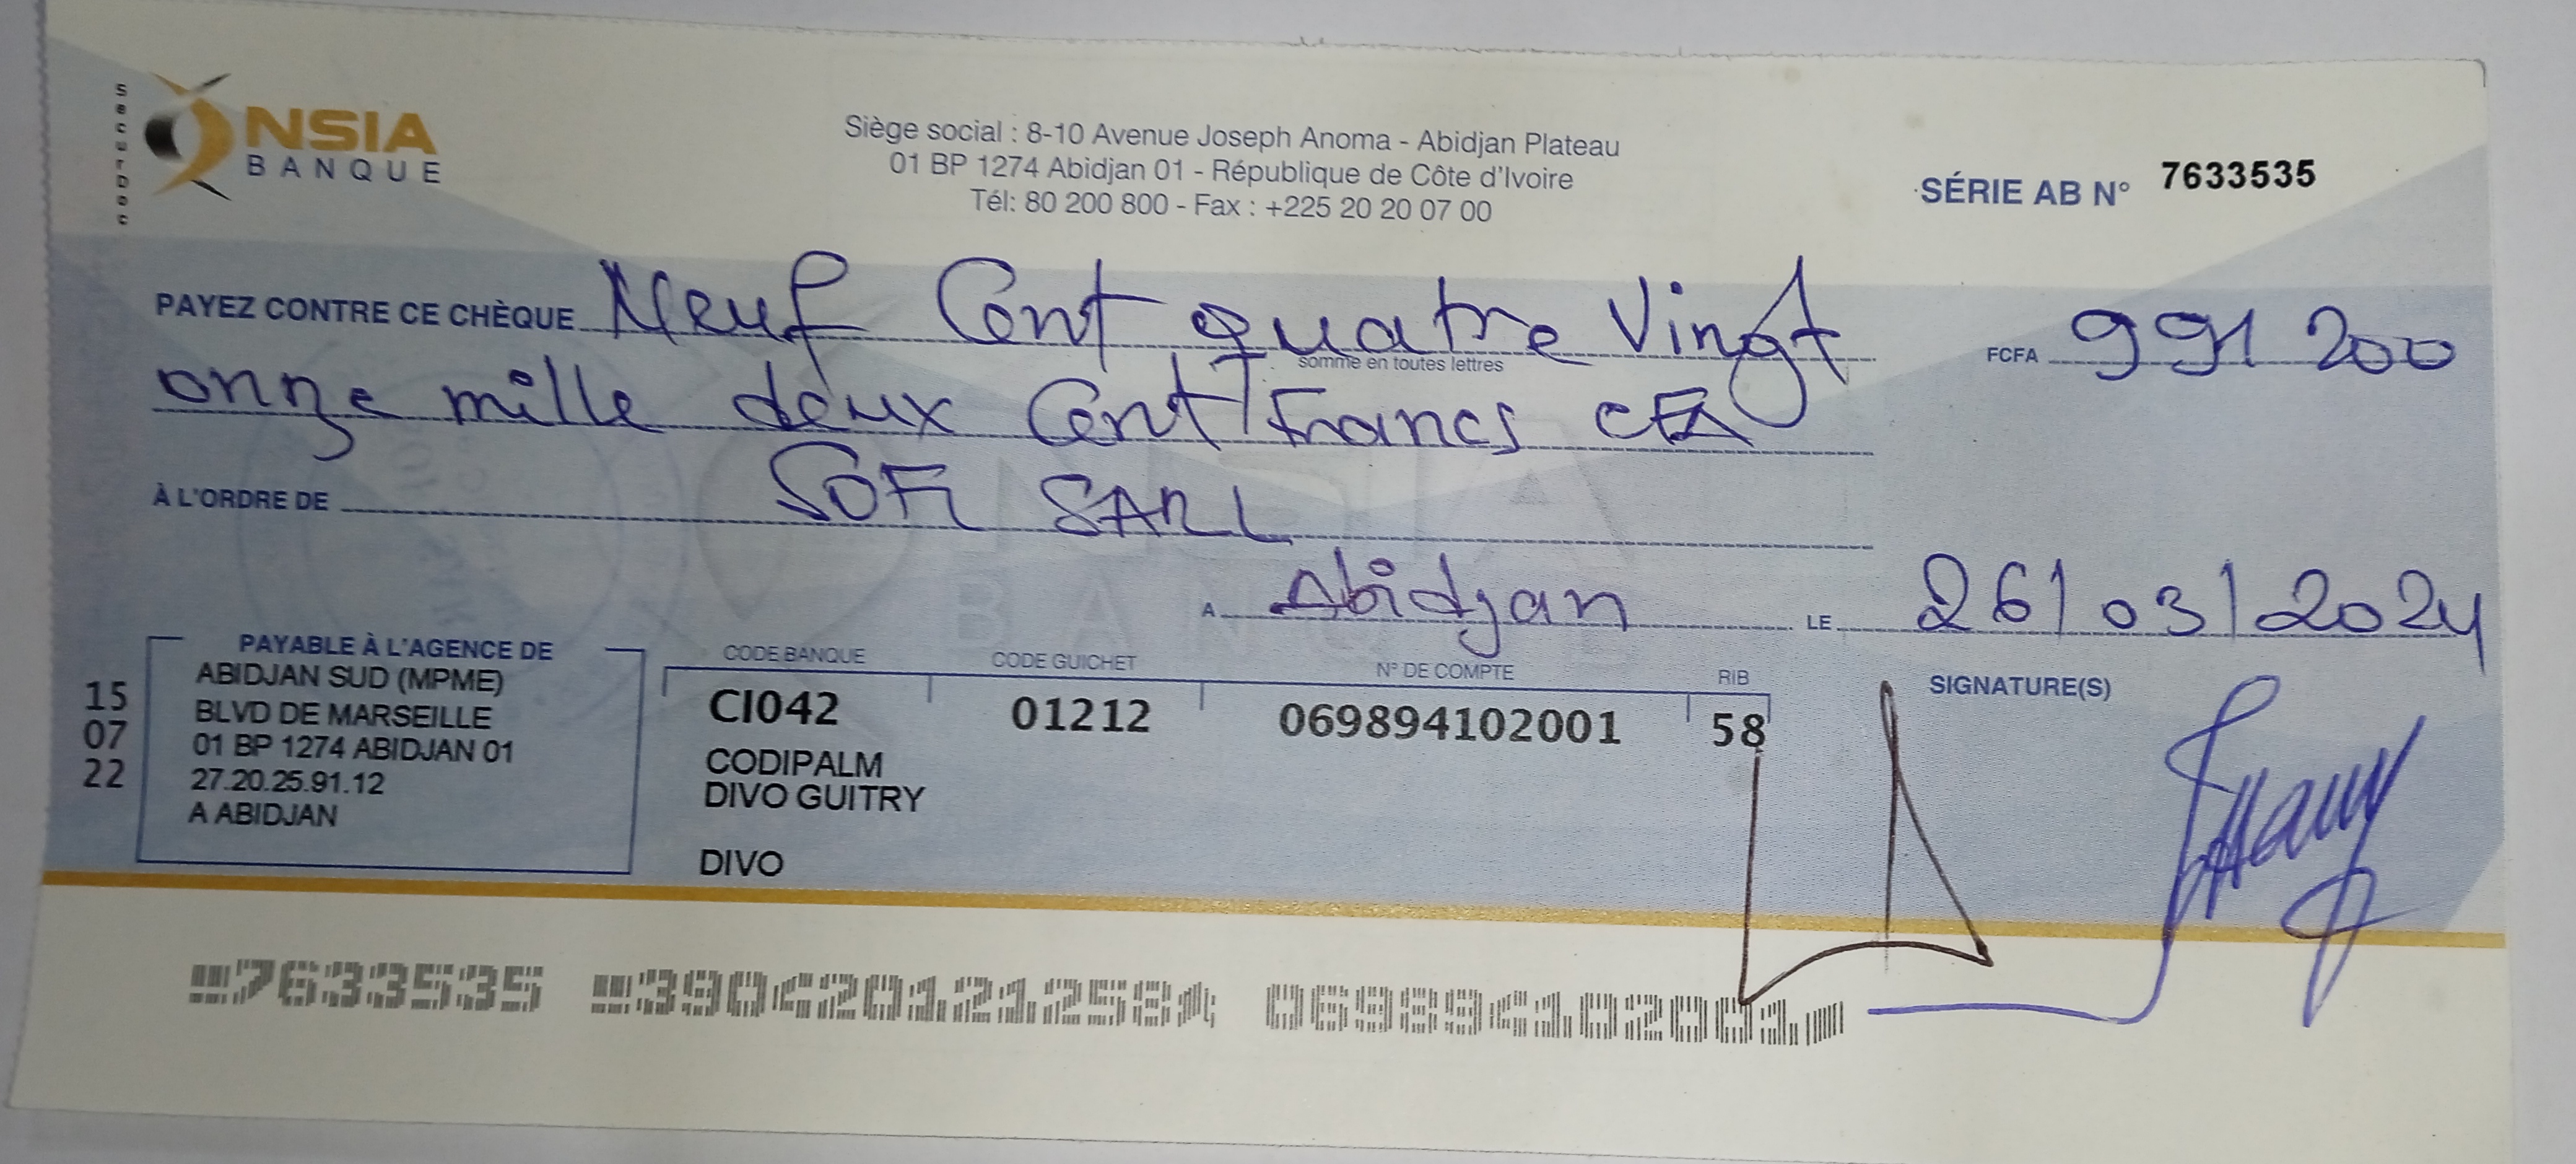 SecurDoc
NSIA
BANQUE
Siège social : 8-10 Avenue Joseph Anoma - Abidjan Plateau
01 BP 1274 Abidjan 01 - République de Côte d'Ivoire
Tél: 80 200 800 - Fax : +225 20 20 07 00
SÉRIE AB N° 7633535
PAYEZ CONTRE CE CHÈQUE Neuf Cent quatre Vingt
somme en toutes lettres
FCFA 991 200
onze mille deux Cent Francs CFA
À L'ORDRE DE SOFI SARL
A Abidjan LE 26/03/2024
PAYABLE À L'AGENCE DE
ABIDJAN SUD (MPME)
BLVD DE MARSEILLE
01 BP 1274 ABIDJAN 01
27.20.25.91.12
A ABIDJAN
15
07
22
CODE BANQUE CODE GUICHET N° DE COMPTE RIB
CI042 01212 069894102001 58
CODIPALM
DIVO GUITRY
DIVO
SIGNATURE(S)
7633535 390420121258 069894102001